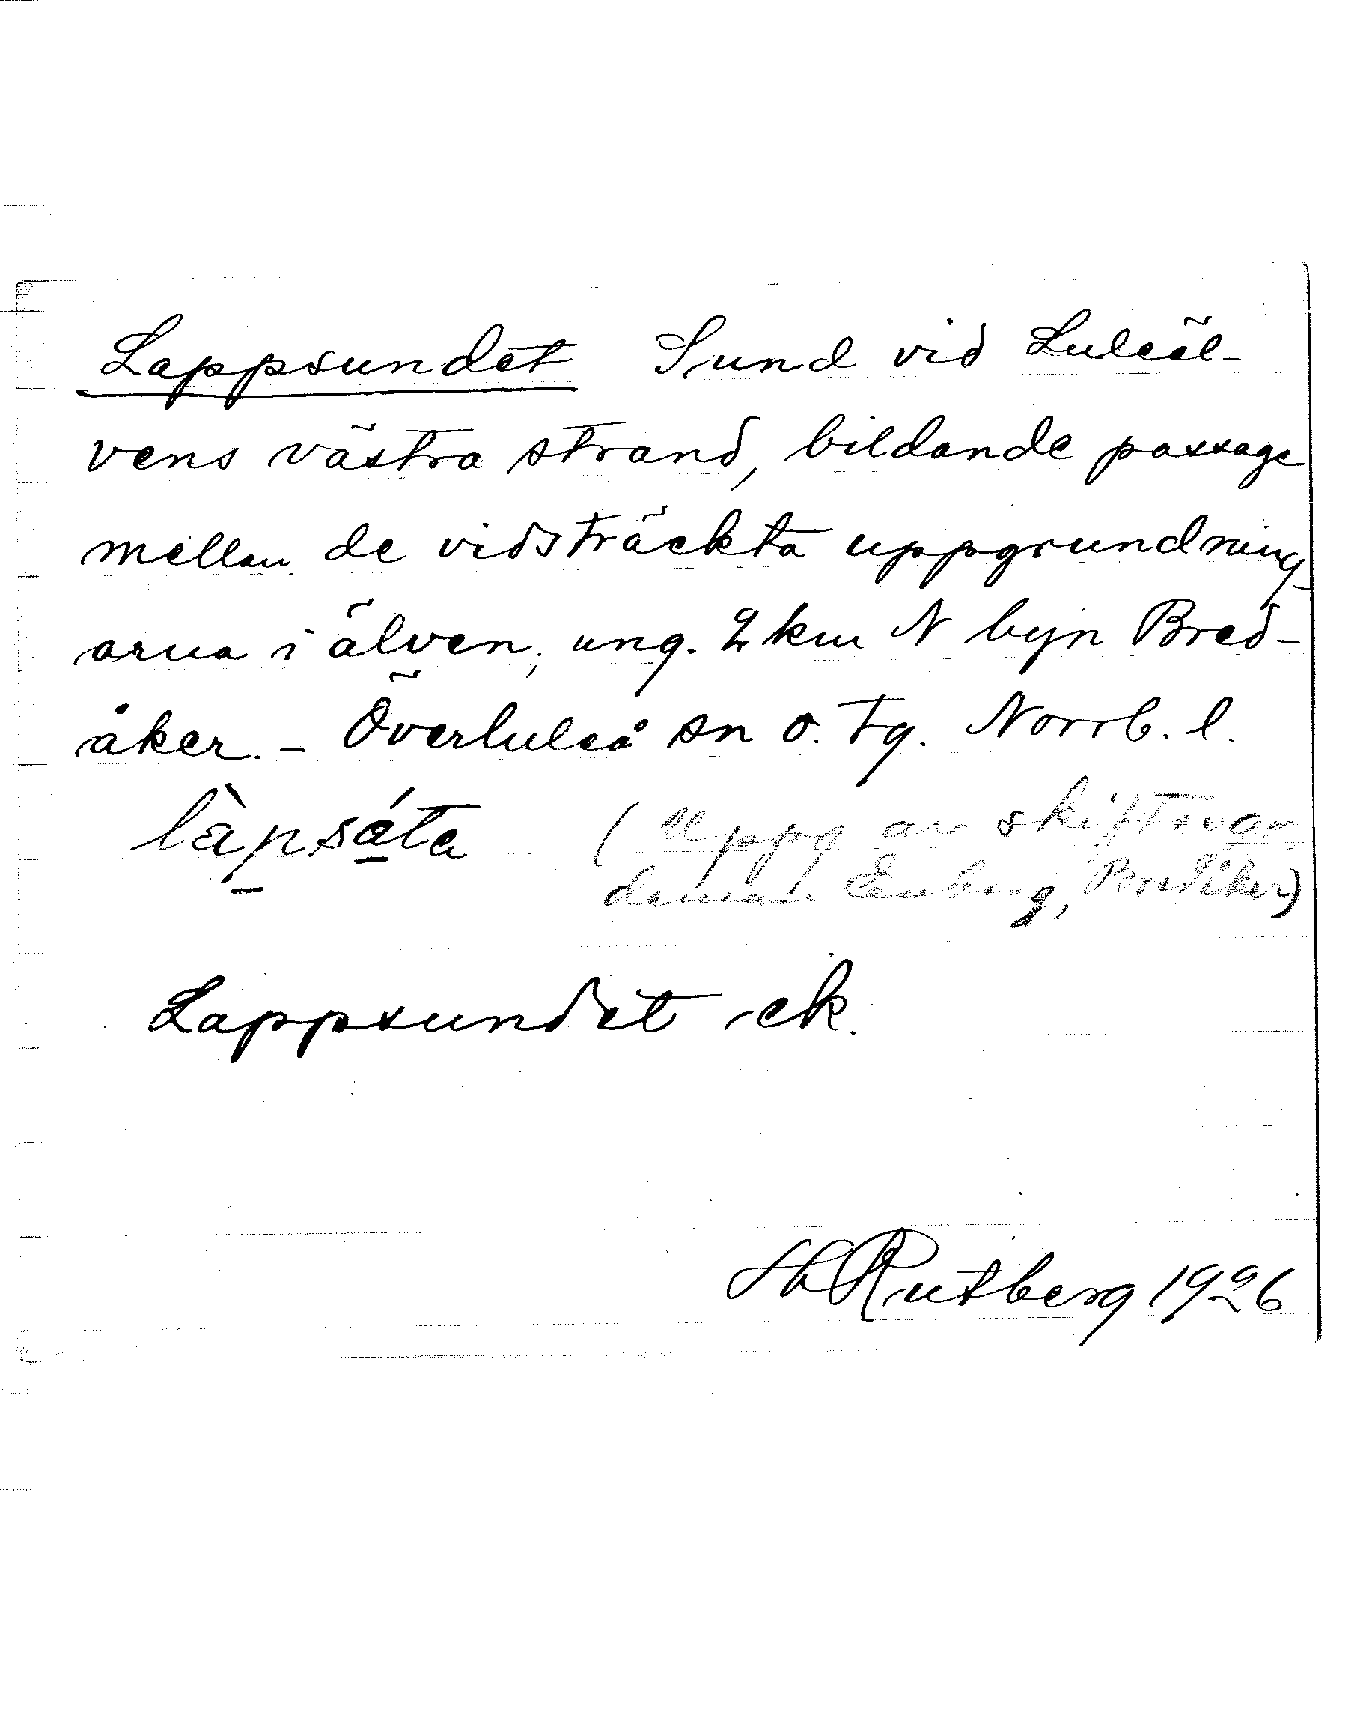 Lappsundet Sund vid Luleäl-
vens västra strand, bildande passage
mellan de vidsträckta uppgrundning-
arna i älven, ung. 2 km N byn Bred-
åker. – Överluleå sn o. tg. Norrb. l.
làpsáta (Uppg av skiftsgo-
deman Enberg, Bredåker)
Lappsundet ek.
Rutberg 1926